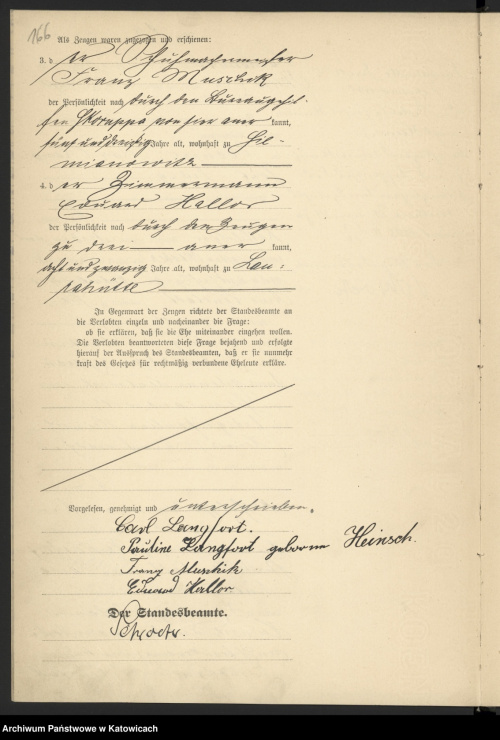 166
Als Zeugen waren zugezogen und erschienen:
3. der Schuhmachermeister
Franz Muschik
der Persönlichkeit nach durch den Bureaugehil-
fen Skoruppa von hier aner kannt,
fünfunddreißig Jahre alt, wohnhaft zu Sie-
mianowitz
4. der Zimmermann
Eduard Hallor
der Persönlichkeit nach durch den Zeugen
zu drei aner kannt,
achtundzwanzig Jahre alt, wohnhaft zu Lau-
rahütte
In Gegenwart der Zeugen richtete der Standesbeamte an
die Verlobten einzeln und nacheinander die Frage:
ob sie erklären, daß sie die Ehe miteinander eingehen wollen.
Die Verlobten beantworteten diese Frage bejahend und erfolgte
hierauf der Ausspruch des Standesbeamten, daß er sie nunmehr
kraft des Gesetzes für rechtmäßig verbundene Eheleute erkläre.
Vorgelesen, genehmigt und unterschrieben.
Carl Langfort.
Pauline Langfort geborne Heinsch.
Franz Muschik
Eduard Hallor
Der Standesbeamte.
Archiwum Państwowe w Katowicach